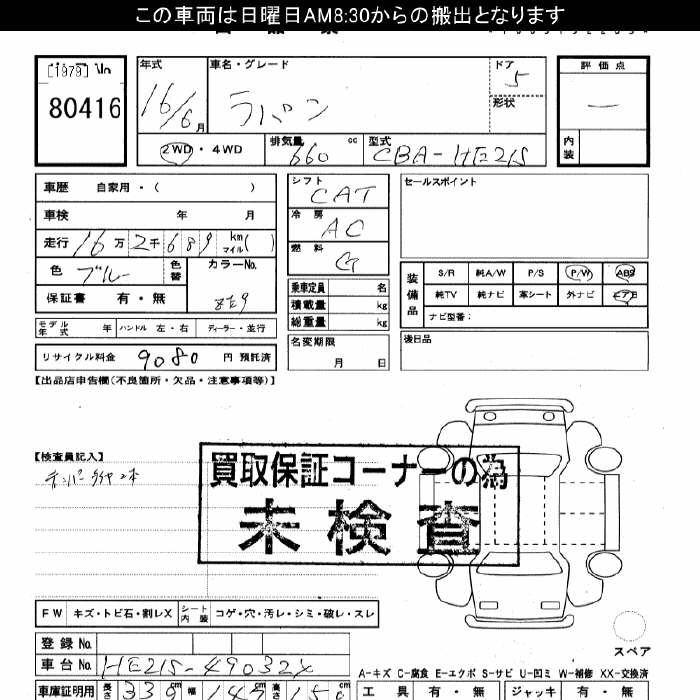 この車両は日曜日AM8:30からの搬出となります
[1979] No
80416
年式
16/6月
車名・グレード
ラパン
ドア
5
形状
評価点
内装
2WD・4WD
排気量
660 cc
型式
CBA-HE21S
車歴 自家用・( )
車検 年 月
走行 16万2千689 km マイル( )
色 ブルー
色替
カラーNo.
ZE9
保証書 有・無
モデル年式 年 ハンドル 左・右 ディーラー・並行
リサイクル料金 9080 円 預託済
シフト
CAT
冷房
AC
燃料
G
乗車定員 名
積載量 kg
総重量 kg
名変期限
月 日
セールスポイント
装備品
S/R 純A/W P/S P/W ABS
純TV 純ナビ 革シート 外ナビ エアB
ナビ型番:
後日品
【出品店申告欄(不良箇所・欠品・注意事項等)】
【検査員記入】
テンパータイヤ2本
買取保証コーナーの為
未検査
FW キズ・トビ石・割レX シート内装 コゲ・穴・汚レ・シミ・破レ・スレ
登録No.
車台No. HE21S-490324
スペア
A-キズ C-腐食 E-エクボ S-サビ U-凹ミ W-補修 XX-交換済
車庫証明用 長さ 339cm 幅 147cm 高さ 150
工具 有・無 ジャッキ 有・無